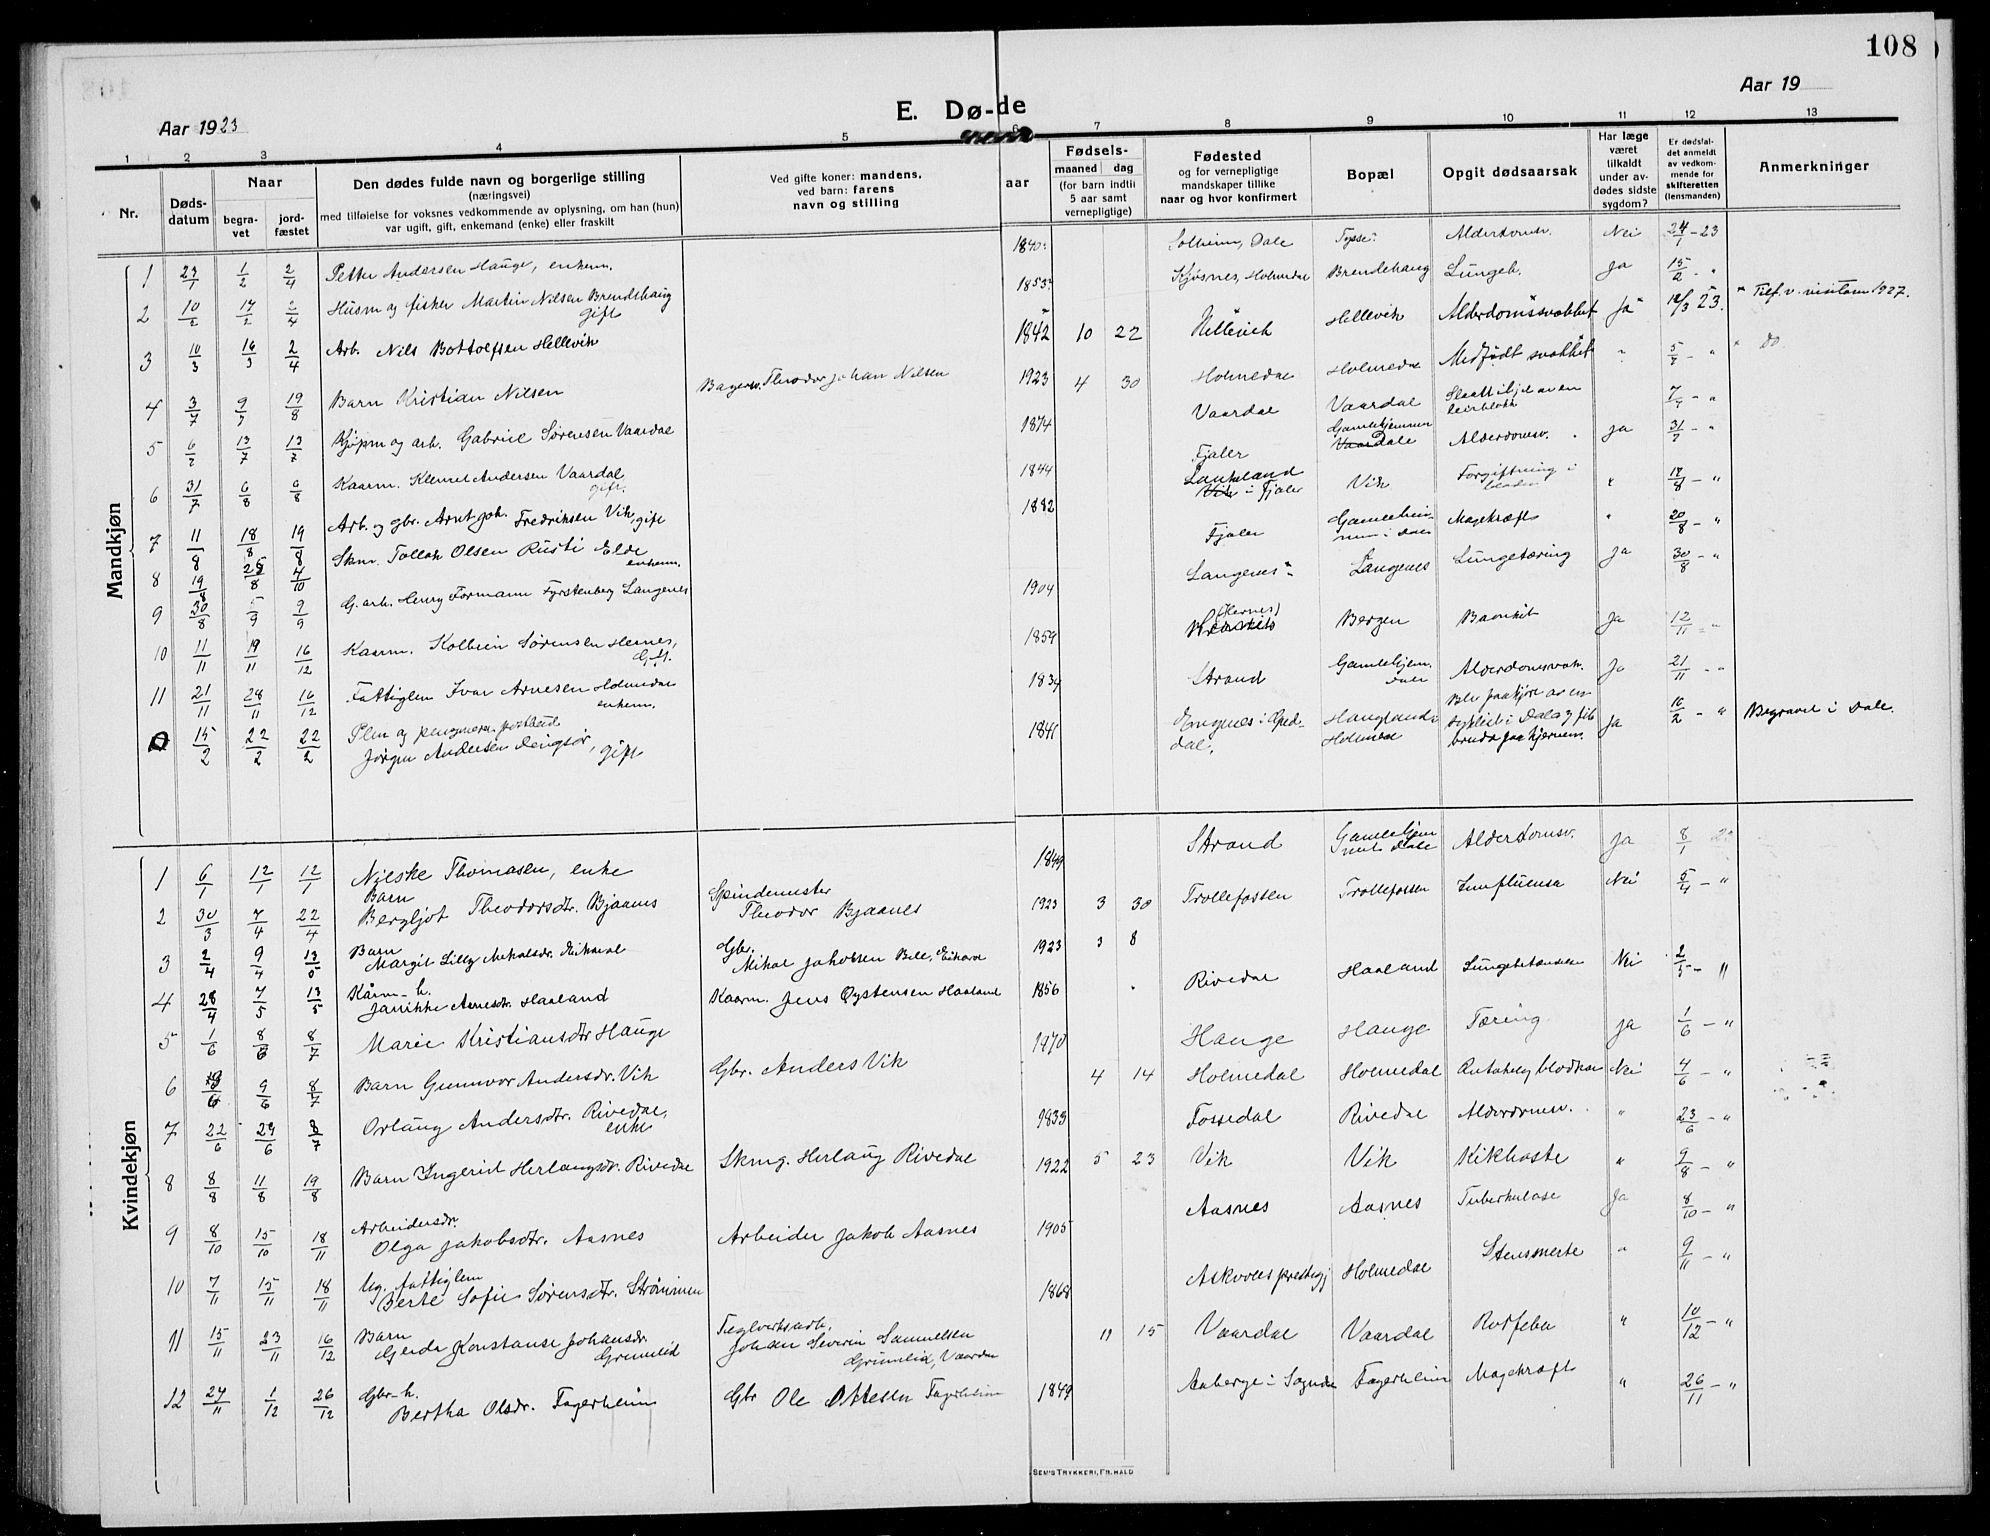 108
Aar 1923
E. Dø-de
Aar 19
1 2 3 4 5 6 7 8 9 10 11 12 13
Nr.
Døds-datum
Naar
begra-vet
jord-fæstet
Den dødes fulde navn og borgerlige stilling
(næringsvei)
med tilføielse for voksnes vedkommende av oplysning, om han (hun)
var ugift, gift, enkemand (enke) eller fraskilt
Ved gifte koner: mandens,
ved barn: farens
navn og stilling
Fødsels-
aar
maaned dag
(for barn indtil
5 aar samt
vernepligtige)
Fødested
og for vernepligtige
mandskaper tillike
naar og hvor konfirmert
Bopæl
Opgit dødsaarsak
Har læge
været
tilkaldt
under av-
dødes sidste
sygdom?
Er dødsfal-
det anmeldt
av vedkom-
mende for
skifteretten
(lensmanden)
Anmerkninger
Mandkjøn
1 23/1 1/2 2/4 Petter Andersen Hauge, enkem. 1840 Solheim, Dale Tysse Alderdomsv. Nei 24/1 - 23
2 10/2 17/2 2/4 Husm og fisker Martin Nilsen Brendehaug gift 1853 Kjøsnes, Holmedal Brendehaug Lungeb. Ja 15/2 - "
3 10/3 16/3 2/4 Arb. Nils Bottolfsen Hellevik 1842 10 22 Hellevik Hellevik Alderdomssvakhet Ja 12/3 23. " Tilf. v. visitasen 1927.
4 3/7 9/7 19/8 Barn Kristian Nilsen Bagersv. Theodor Johan Nilsen 1923 4 30 Holmedal Holmedal Medfødt svakhet " 5/7 - " " Do.
5 6/7 13/7 13/7 Kjøpm og arb. Gabriel Sørensen Vaardal 1874 Vaardal Vaardal Slaatt ihjel av en leirblokk 7/7 - "
6 31/7 6/8 6/8 Kaarm. Klemet Andersen Vaardal gift. 1844 Fjaler Gamlehjemmet Dale Alderdomsv. Ja 31/7 - "
7 11/8 18/8 19/8 Arb. og gbr. Arnt Joh. Fredriksen Vik, gift 1882 Lankeland i Fjaler Vik Forgiftning i bloden " 18/8 - "
8 19/8 25/8 4/10 Skm. Tollak Olsen Rusti Elde enkem. Fjaler Gamleheimen i Dale Magekræft " 20/8 - "
9 30/8 5/9 9/9 G. arb. Henry Formann Fyrstenberg Langenes 1904 Langenes Langenes Lungetæring Ja 30/8 - "
10 11/11 19/11 16/12 Kaarm. Kolbein Sørensen Hernes, Gift. 1859 (Hernes) Bergen Ja 12/11 - "
11 21/11 28/11 16/12 Fattiglem Ivar Arnesen Holmedal enkem. 1834 Strand Gamlehjem. Dale Alderdomsvak. Ja 21/11 - "
15/2 22/2 22/2 Jørgen Andersen gift 1841 Holmedal Blev paakjørt av en i Dale og fik Ja 16/2 - " Begravet i Dale.
Kvindekjøn
1 6/1 12/1 12/1 Nielske Thomasen, enke 1849 Strand Gamlehjemmet Dale Alderdomsv. Ja 8/1 23
2 30/3 7/4 22/4 Barn Bergljot Theodorsdtr. Bjaanes Spindemester Theodor Bjaanes 1923 3 30 Trollefossen Trollefossen Influensa Nei 5/4 - "
3 2/4 9/4 13/5 Barn Margit Lilly Mikalsdr. Eikaral Gbr. Mikal Jakobsen 1923 3 8
4 28/4 7/5 13/5 Kårm-h. Jarikke Arnesdtr. Haaland Kaarm. Jens Øystensen Haaland 1856 Rivedal Haaland Lungebetændelse Nei 2/5 - "
5 1/6 8/6 8/7 Marie Kristiansdtr Hauge 1970 Hauge Hauge Tæring Ja 1/6 - "
6 9/6 8/7 Barn Gunnvor Andersdr. Vik Gbr. Anders Vik 4 14 Holmedal Holmedal Nei 4/6 - "
7 22/6 29/6 8/7 Orlaug Andersdtr. Rivedal, enke 1835 Fossedal Rivedal Alderdomsv. " 23/6 - "
8 8/8 11/8 19/8 Barn Ingerid Herlaugsdr. Rivedal Skmg. Herlaug Rivedal 1922 5 23 Vik Vik Kikhoste " 9/8 - "
9 8/10 15/10 18/11 Arbeidersdr. Olga Jakobsdtr. Aasnes Arbeider Jakob Aasnes 1905 Aasnes Aasnes Tuberkulose Ja 8/10 - "
10 7/11 15/11 18/11 Ug. fattiglem Berte Sofie Sørensdtr. Strømmen 1868 Askvoll prestegj Holmedal Stensmerte " 9/11 - "
11 15/11 23/11 16/12 Barn Gerda Konstanse Johansdr. Grimelid Teglverksarb. Johan Severin Samuelsen Grimelid, Vaardal 11 15 Vaardal Vaardal " 10/12 - "
12 24/11 1/12 26/12 Gbr-h. Bertha Olsdr. Fagerheim Gbr Ole Ottesen Fagerheim 1849 Aaberge i Sogndal Fagerheim Magekræft " 26/11 - "
SEM'S TRYKKERI, FR.HALD